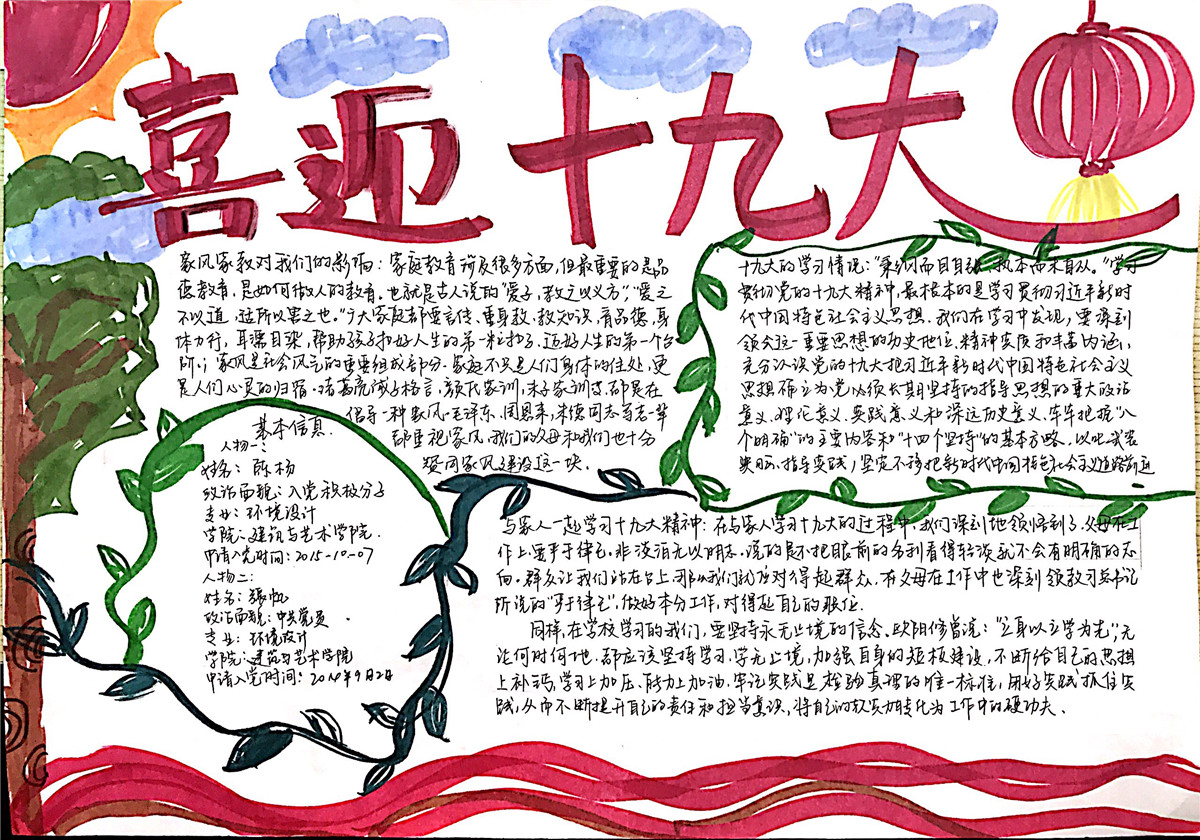 喜迎十九大
家风家教对我们的影响：家庭教育涉及很多方面，但最重要的是品
德教育，是如何做人的教育。也就是古人说的"爱子，教之以义方"，"爱之
不以道，适所以害之也。"广大家庭都要言传、重身教，教知识、育品德，身
体力行，耳濡目染，帮助孩子扣好人生的第一粒扣子，迈好人生的第一个台
阶；家风是社会风气的重要组成部分。家庭不只是人们身体的住处，更
是人们心灵的归宿。诸葛亮诫子格言、颜氏家训、朱子家训等，都是在
倡导一种家风。毛泽东、周恩来、朱德同志等老一辈
都重视家风，我们的父母和我们也十分
家风建设这一块。
基本信息
人物一：
姓名：陈杨
政治面貌：入党积极分子
专业：环境设计
学院：建筑与艺术学院.
申请入党时间：2015-10-07
人物二：
姓名：张帆
政治面貌：中共党员
专业：环境设计
学院：建筑与艺术学院
申请入党时间：2014年9月2日
十九大的学习情况："乘纲而目自张，执本而末自从。"学习
贯彻党的十九大精神，最根本的是学习贯彻习近平新时
代中国特色社会主义思想。我们在学习中发现，要深刻
领会这一重要思想的历史地位、精神实质和丰富内涵，
充分认识党的十九大把习近平新时代中国特色社会主义
思想确立为党必须长期坚持的指导思想的重大政治
意义、理论意义、实践意义和深远历史意义，牢牢把握"八
个明确"的主要内容和"十四个坚持"的基本方略，以此武装
头脑、指导实践，坚定不移把新时代中国特色社会主义道路
与家人一起学习十九大精神：在与家人学习十九大的过程中，我们深刻地领悟到了，父母在工
作上要严于律己，非淡泊无以明志，说的是不把眼前的名利看得轻淡就不会有明确的志
向。群众让我们站在台上，那么我们就应对得起群众，在父母在工作中也深刻领教习总书记
所说的"严于律己"，做好本分工作，对得起自己的职位.
同样，在学校学习的我们，要坚持永无止境的信念。欧阳修曾说："立身以立学为先"，无
论何时何地，都应该坚持学习，学无止境，加强自身的短板建设，不断给自己的思想
上补钙，学习上加压，能力上加油，牢记实践是检验真理的唯一标准，用好实践抓住实
践，从而不断提升自己的责任和担当意识，将自己的软实力转化为工作中的硬功夫.